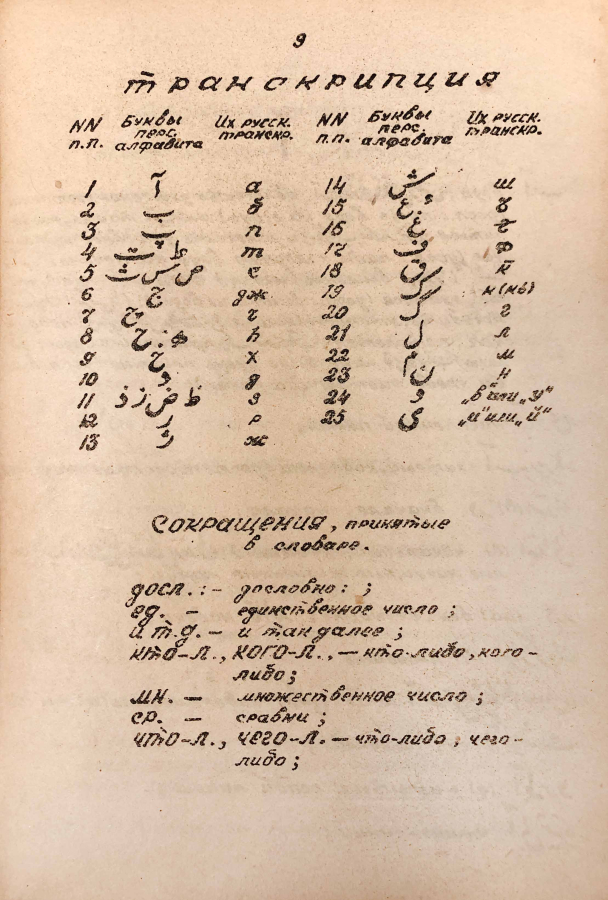 9
транскрипция
NN п.п. Буквы перс. алфавита Их русск. транскр. NN п.п. Буквы перс. алфавита Их русск. транскр.
1 آ а 14 ش ш
2 ب б 15 ع
3 پ п 16 غ
4 ت ط т 17 ف ф
5 ث س ص с 18 ق
6 ج дж 19 ک к(кь)
7 چ ч 20 گ г
8 ح ه h 21 ل л
9 خ х 22 م м
10 د д 23 ن н
11 ذ ز ض ظ з 24 و „в" или „у"
12 ر р 25 ی „и" или „й"
13 ژ ж
Сокращения, принятые
в словаре.
досл.: – дословно: ;
ед. – единственное число;
и т.д. – и так далее;
кто-л., кого-л., – кто-либо, кого-
либо;
мн. – множественное число;
ср. – сравни;
что-л., чего-л. – что-либо, чего-
либо;